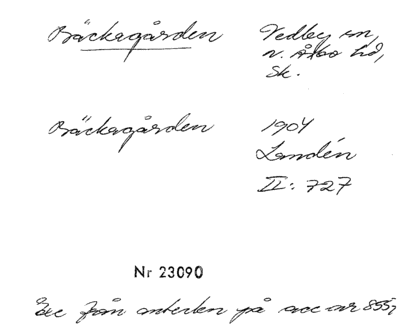 Bäckagården Vedby sn,
N. Åsbo hd,
Sk.
Bäckagården 1904
Landén
II: 727
Nr 23090
Exc från anteckn på acc nr 855,